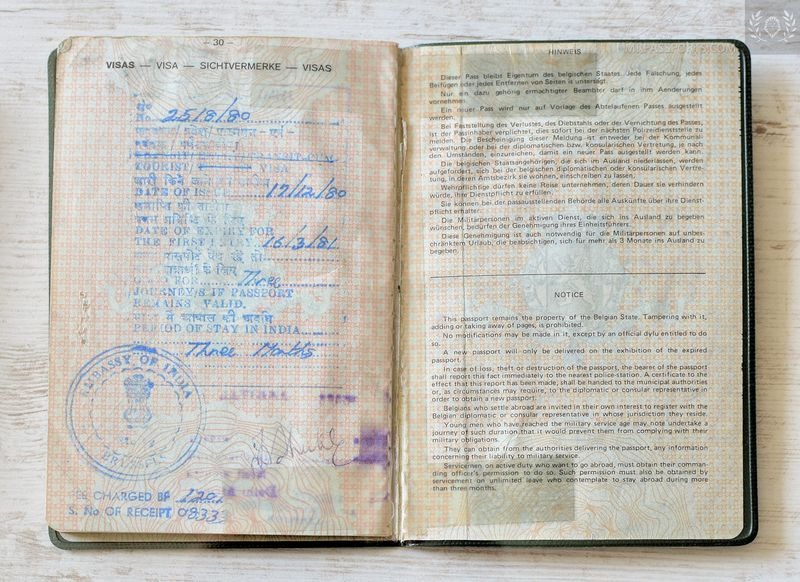 — 30 —
VISAS — VISA — SICHTVERMERKE — VISAS
No. 25/8/80
TOURIST/ VISA
DATE OF ISSUE 17/12/80
DATE OF EXPIRY FOR
THE FIRST ENTRY 16/3/81
GOOD FOR Three
JOURNEYS IF PASSPORT
REMAINS VALID.
PERIOD OF STAY IN INDIA
Three Months
EMBASSY OF INDIA
BRUSSELS
FEE CHARGED BF 120/-
S. No OF RECEIPT 08333
HINWEIS
Dieser Pass bleibt Eigentum des belgischen Staates. Jede Fälschung, jedes
Beifügen oder jedes Entfernen von Seiten ist untersagt.
Nur ein dazu gehörig ermächtigter Beamter darf in ihm Aenderungen
vornehmen.
Ein neuer Pass wird nur auf Vorlage des Abtelaufenen Passes ausgestellt
werden.
Bei Feststellung des Verlustes, des Diebstahls oder der Vernichtung des Passes,
ist der Passinhaber verplichtet, dies sofort bei der nächsten Polizeidienststelle zu
melden. Die Bescheinigung dieser Meldung ist entweder bei der Kommunal-
verwaltung oder bei der diplomatischen bzw. konsularischen Vertretung, je nach
den Umständen, einzureichen, damit ein neuer Pass ausgestellt werden kann.
Die belgischen Staatsangehörigen, die sich im Ausland niederlassen, werden
aufgefordert, sich bei der belgischen diplomatischen oder konsularischen Vertre-
tung, in deren Amtsbezirk sie wohnen, einschreiben zu lassen.
Wehrpflichtige dürfen keine Reise unternehmen, deren Dauer sie verhindern
würde, ihre Dienstpflicht zu erfüllen.
Sie können bei der passausstellenden Behörde alle Auskünfte über ihre Dienst-
pflicht erhalten.
Die Militärpersonen im aktiven Dienst, die sich ins Ausland zu begeben
wünschen, bedürfen der Genehmigung ihres Einheitsführers.
Diese Genehmigung ist auch notwendig für die Militärpersonen auf unbe-
schränktem Urlaub, die beabsichtigen, sich für mehr als 3 Monate ins Ausland zu
begeben.
NOTICE
This passport remains the property of the Belgian State. Tampering with it,
adding or taking away of pages, is prohibited.
No modifications may be made in it, except by an official dylu entitled to do
so.
A new passport will only be delivered on the exhibition of the expired
passport.
In case of loss, theft or destruction of the passport, the bearer of the passport
shall report this fact immediately to the nearest police-station. A certificate to the
effect that this report has been made, shall be handed to the municipal authorities
or, as circumstances may require, to the diplomatic or consular representative in
order to obtain a new passport.
Belgians who settle abroad are invited in their own interest to register with the
Belgian diplomatic or consular representative in whose jurisdiction they reside.
Young men who have reached the military service age may note undertake a
journey of such duration that it would prevent them from complying with their
military obligations.
They can obtain from the authorities delivering the passport, any information
concerning their liability to military service.
Servicemen on active duty who want to go abroad, must obtain their comman-
ding officer's permission to do so. Such permission must also be obtained by
servicement on unlimited leave who contemplate to stay abroad during more
than three months.